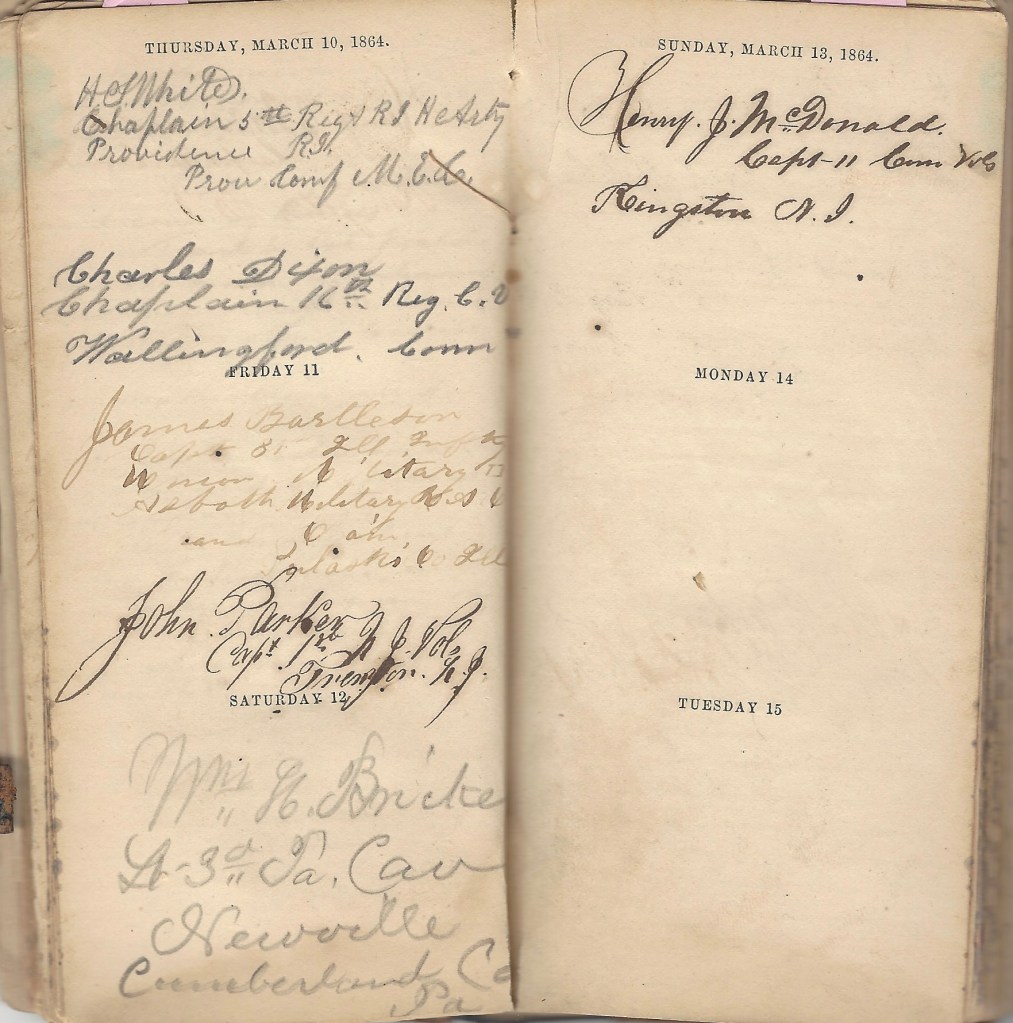 THURSDAY, MARCH 10, 1864.
H S White.
Chaplain 5th Regt R I H Arty
Providence R.I.
Prov Conf M. E. Ch
Charles Dixon
Chaplain 16th Reg. C. V
Wallingford. Conn
FRIDAY 11
James Bartleson
Capt 81 Ill Inf
Union Military
Asboth Military
and
Pulaski Co Ill
John Parker
Capt 1st N J Vols
Trenton. N. J.
SATURDAY 12
Wm H. Bricke
Lt 3d Pa. Cav
Newville
Cumberland Co
Pa
SUNDAY, MARCH 13, 1864.
Henry. J. McDonald.
Capt 11 Conn Vols
Kingston N. J.
MONDAY 14
TUESDAY 15